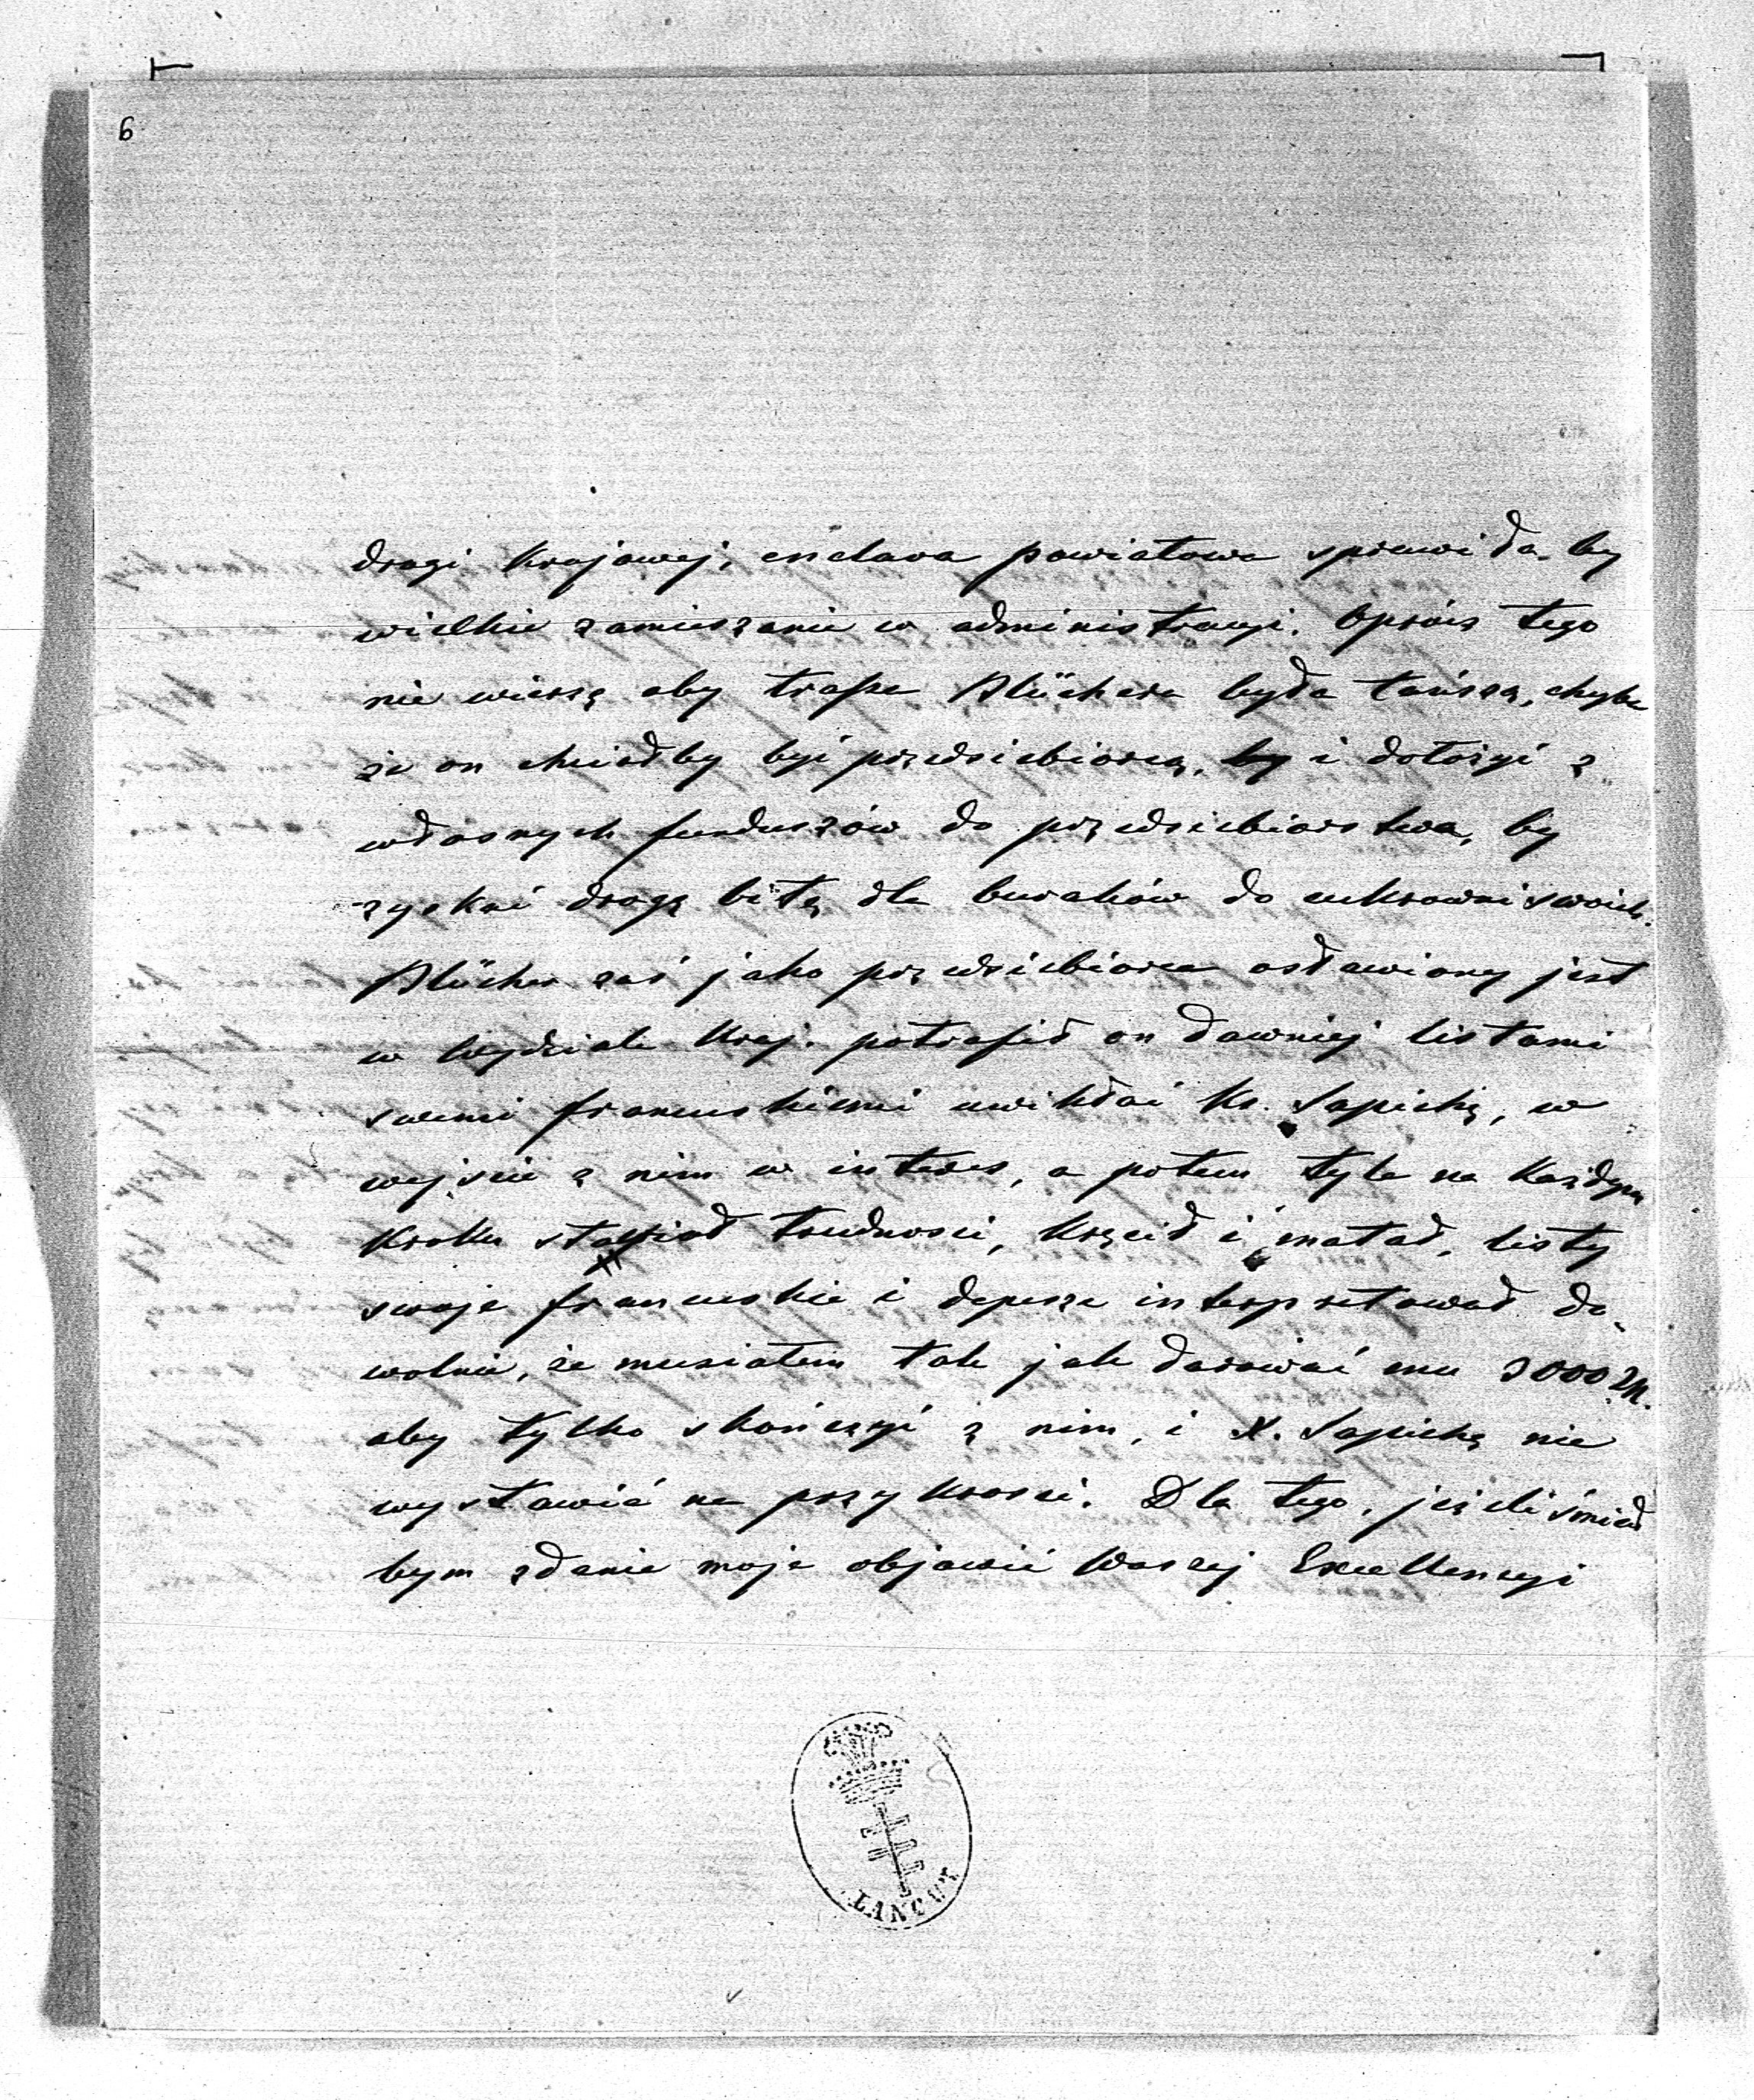 6
drogi krajowej, enclava powiatowa sprawiła by
wielkie zamieszanie w administracyi. Oprócz tego
nie wierzę aby trassa Blüchera była tańszą, chyba
że on chciałby być przedsiebiorcą, by i dołożyć z
własnych funduszów do przedsiebiorstwa, by
zyskać drogę bitą dla buraków do cukrowni swoich.
Blücher zaś jako przedsiebiorca osławiony jest
w Wydziale Kraj. potrafił on dawniej listami
swemi francuskiemi uwikłać Ks. Sapiehę, w
wejście z nim w interes, a potem tyle na każdym
kroku stawiał trudności, kręcił i matał, listy
swoje francuskie i depesze interpretował do-
wolnie, że musiałem tak jak darować mu 3000 ZŁ.
aby tylko skończyć z nim, i X. Sapiehę nie
wystawić na przykrości. Dla tego, jeżeli śmiał
bym zdanie moje objawić Waszej Excellencyi
ŁAŃCUT